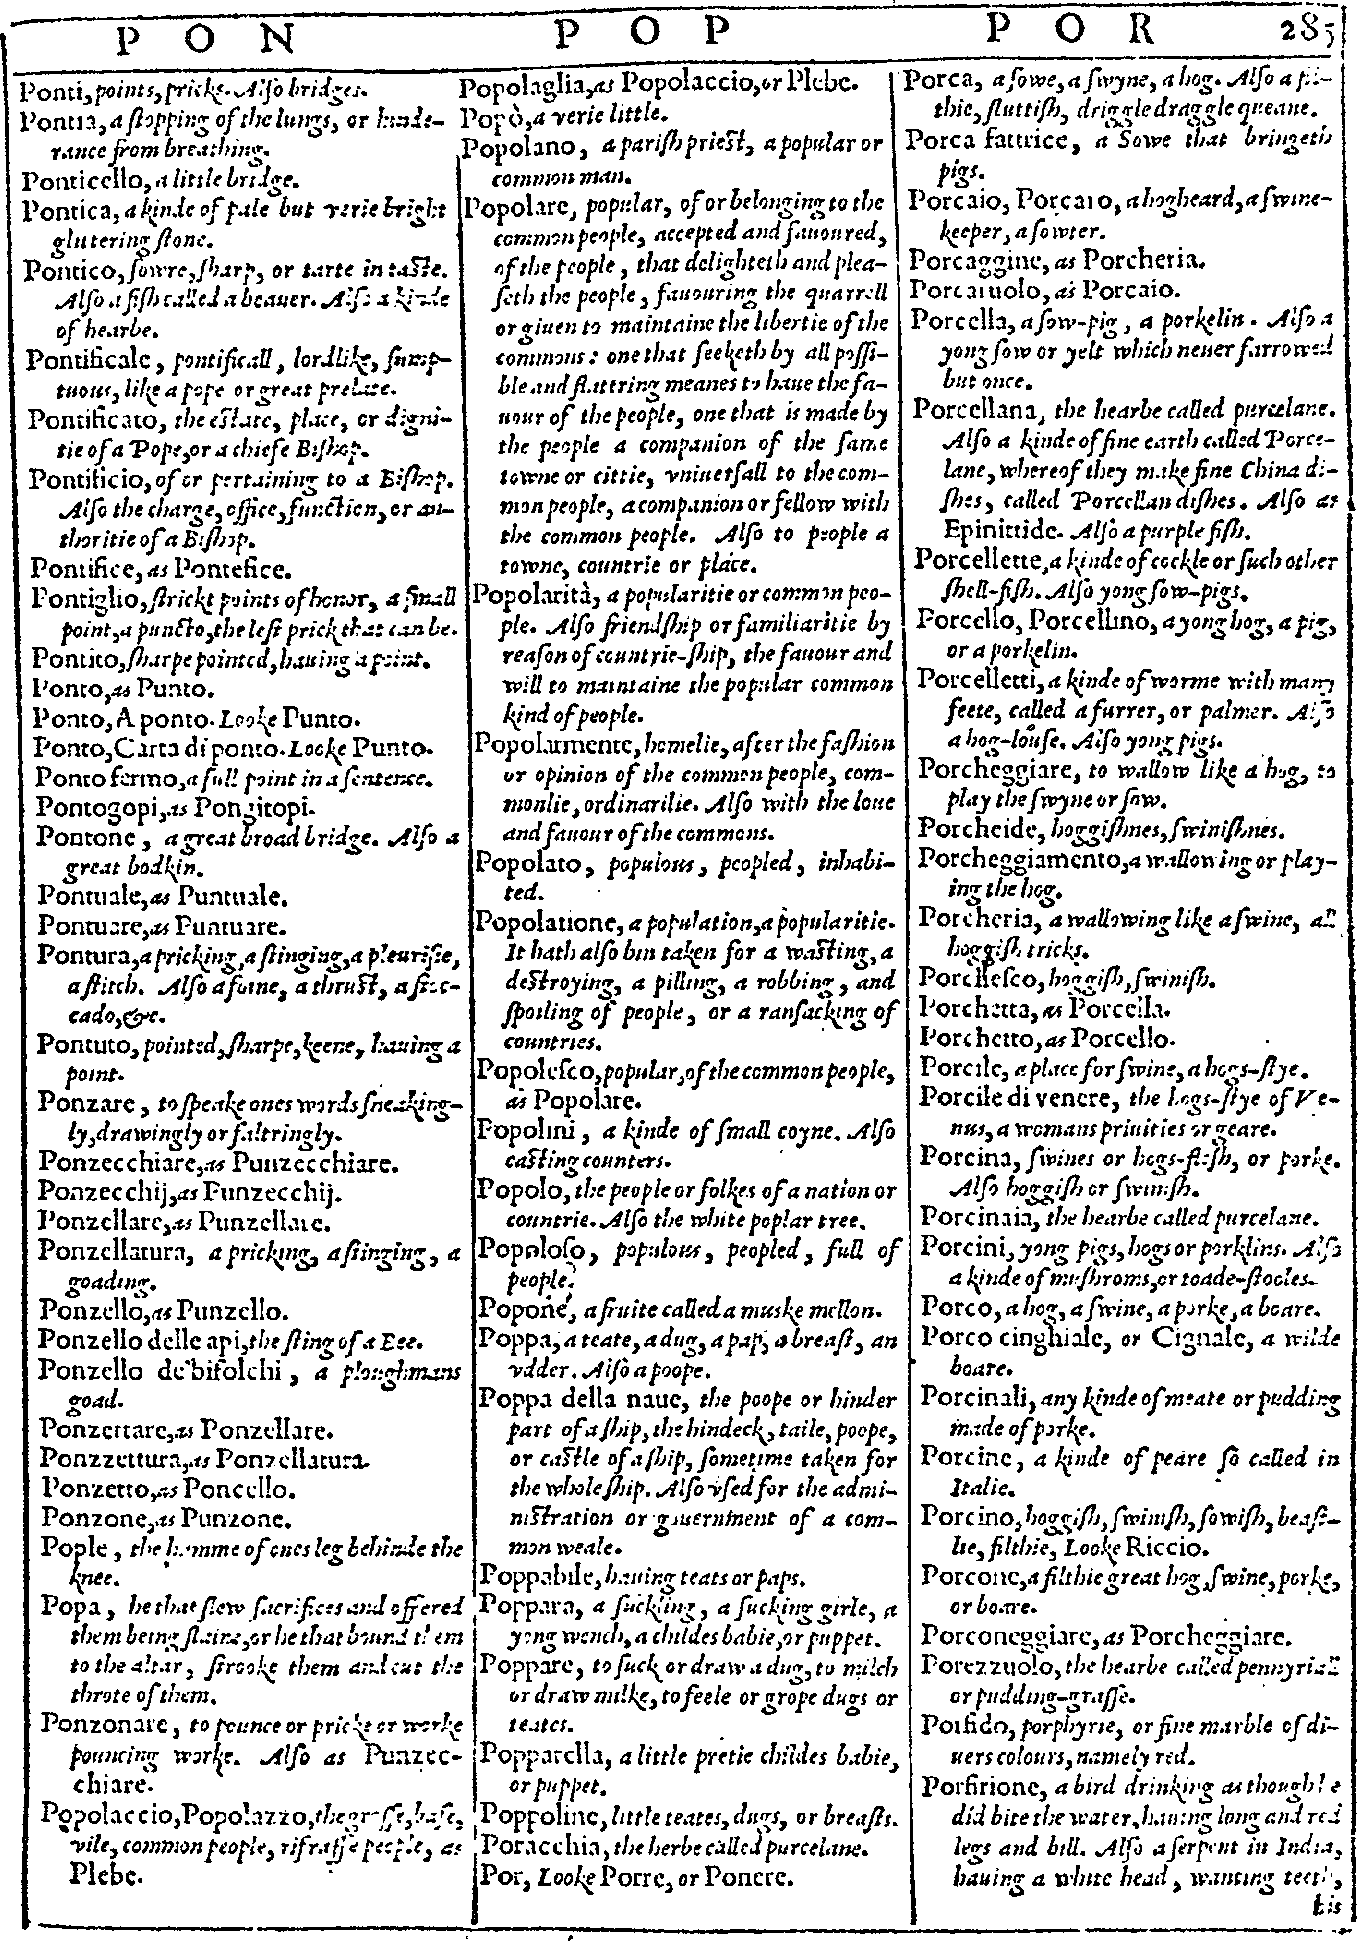 P O N
P O P
P O R
285
Ponti, points, pricks. Also bridges.
Pontia, a stopping of the lungs, or hinde-
rance from breathing.
Ponticello, a little bridge.
Pontica, a kinde of pale but verie bright
glittering stone.
Pontico, sowre, sharp, or tarte in taste.
Also a fish called a beauer. Also a kinde
of hearbe.
Pontificale, pontificall, lordlike, sump-
tuous, like a pope or great prelate.
Pontificato, the estate, place, or digni-
tie of a Pope, or a chiefe Bishop.
Pontificio, of or pertaining to a Bishop.
Also the charge, office, function, or au-
thoritie of a Bishop.
Pontifice, as Pontefice.
Pontiglio, strickt points of honor, a small
point, a puncto, the lest prick that can be.
Pontito, sharpe pointed, hauing a point.
Ponto, as Punto.
Ponto, A ponto. Looke Punto.
Ponto, Carta di ponto. Looke Punto.
Ponto fermo, a full point in a sentence.
Pontogopi, as Pongitopi.
Pontone, a great broad bridge. Also a
great bodkin.
Pontuale, as Puntuale.
Pontuare, as Puntuare.
Pontura, a pricking, a stinging, a pleurisie,
a stitch. Also a foine, a thrust, a stoc-
cado, &c.
Pontuto, pointed, sharpe, keene, hauing a
point.
Ponzare, to speake ones words sneaking-
ly, drawingly or faltringly.
Ponzecchiare, as Punzecchiare.
Ponzecchij, as Punzecchij.
Ponzellare, as Punzellare.
Ponzellatura, a pricking, a stinging, a
goading.
Ponzello, as Punzello.
Ponzello delle api, the sting of a Bee.
Ponzello de'bifolchi, a ploughmans
goad.
Ponzettare, as Ponzellare.
Ponzzettura, as Ponzellatura.
Ponzetto, as Poncello.
Ponzone, as Punzone.
Pople, the hamme of ones leg behinde the
knee.
Popa, he that slew sacrifices and offered
them being slaine, or he that bound them
to the altar, strooke them and cut the
throte of them.
Ponzonare, to pounce or pricke or worke
pouncing worke. Also as Punzec-
chiare.
Popolaccio, Popolazzo, the grosse, base,
vile, common people, rifraffe people, as
Plebe.
Popolaglia, as Popolaccio, or Plebe.
Popò, a verie little.
Popolano, a parish priest, a popular or
common man.
Popolare, popular, of or belonging to the
common people, accepted and fauoured,
of the people, that delighteth and plea-
seth the people, fauouring the quarrell
or giuen to maintaine the libertie of the
commons: one that seeketh by all possi-
ble and flattring meanes to haue the fa-
uour of the people, one that is made by
the people a companion of the same
towne or cittie, vniuersall to the com-
mon people, a companion or fellow with
the common people. Also to people a
towne, countrie or place.
Popolarità, a popularitie or common peo-
ple. Also friendship or familiaritie by
reason of countrie-ship, the fauour and
will to maintaine the popular common
kind of people.
Popolarmente, homelie, after the fashion
or opinion of the common people, com-
monlie, ordinarilie. Also with the loue
and fauour of the commons.
Popolato, populous, peopled, inhabi-
ted.
Popolatione, a population, a popularitie.
It hath also bin taken for a wasting, a
destroying, a pilling, a robbing, and
spoiling of people, or a ransacking of
countries.
Popolesco, popular, of the common people,
as Popolare.
Popolini, a kinde of small coyne. Also
casting counters.
Popolo, the people or folkes of a nation or
countrie. Also the white poplar tree.
Popoloso, populous, peopled, full of
people.
Popone, a fruite called a muske mellon.
Poppa, a teate, a dug, a pap, a breast, an
vdder. Also a poope.
Poppa della naue, the poope or hinder
part of a ship, the hindeck, taile, poope,
or castle of a ship, sometime taken for
the whole ship. Also vsed for the admi-
nistration or gouernment of a com-
mon weale.
Poppabile, hauing teats or paps.
Poppara, a suckling, a sucking girle, a
yong wench, a childes babie, or puppet.
Poppare, to suck or draw a dug, to milch
or draw milke, to feele or grope dugs or
teates.
Popparella, a little pretie childes babie,
or puppet.
Poppoline, little teates, dugs, or breasts.
Poracchia, the herbe called purcelane.
Por, Looke Porre, or Ponere.
Porca, a sowe, a swyne, a hog. Also a fil-
thie, sluttish, driggle draggle queane.
Porca fattrice, a Sowe that bringeth
pigs.
Porcaio, Porcaro, a hogheard, a swine-
keeper, a sowter.
Porcaggine, as Porcheria.
Porcaruolo, as Porcaio.
Porcella, a sow-pig, a porkelin. Also a
yong sow or yelt which neuer farrowed
but once.
Porcellana, the hearbe called purcelane.
Also a kinde of fine earth called Porce-
lane, whereof they make fine China di-
shes, called Porcellan dishes. Also as
Epinittide. Also a purple fish.
Porcellette, a kinde of cockle or such other
shell-fish. Also yong sow-pigs.
Porcello, Porcellino, a yong hog, a pig,
or a porkelin.
Porcelletti, a kinde of worme with many
feete, called a furrer, or palmer. Also
a hog-louse. Also yong pigs.
Porcheggiare, to wallow like a hog, to
play the swyne or sow.
Porcheide, hoggishnes, swinishnes.
Porcheggiamento, a wallowing or play-
ing the hog.
Porcheria, a wallowing like a swine, all
hoggish tricks.
Porchesco, hoggish, swinish.
Porchetta, as Porcella.
Porchetto, as Porcello.
Porcile, a place for swine, a hogs-stye.
Porcile di venere, the hogs-stye of Ve-
nus, a womans priuities or geare.
Porcina, swines or hogs-flesh, or porke.
Also hoggish or swinish.
Porcinaia, the hearbe called purcelane.
Porcini, yong pigs, hogs or porklins. Also
a kinde of mushroms, or toade-stooles.
Porco, a hog, a swine, a porke, a boare.
Porco cinghiale, or Cignale, a wilde
boare.
Porcinali, any kinde of meate or pudding
made of porke.
Porcine, a kinde of peare so called in
Italie.
Porcino, hoggish, swinish, sowish, beast-
lie, filthie, Looke Riccio.
Porcone, a filthie great hog, swine, porke,
or boare.
Porconeggiare, as Porcheggiare.
Porezzuolo, the hearbe called pennyriall
or pudding-grasse.
Porfido, porphyrie, or fine marble of di-
uers colours, namely red.
Porfirione, a bird drinking as though he
did bite the water, hauing long and red
legs and bill. Also a serpent in India,
hauing a white head, wanting teeth,
his